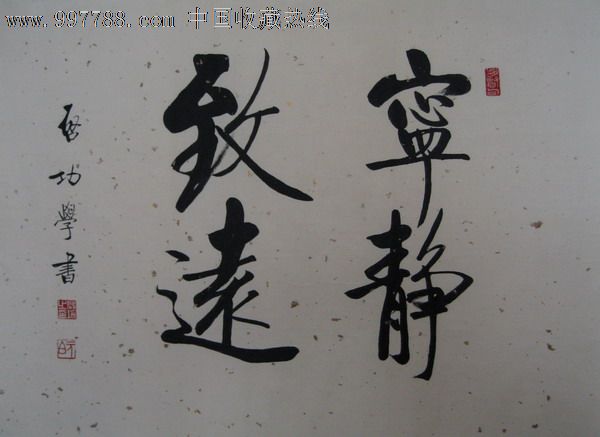 www.997788.com 中国收藏热线
寧静
致遠
啓功學書